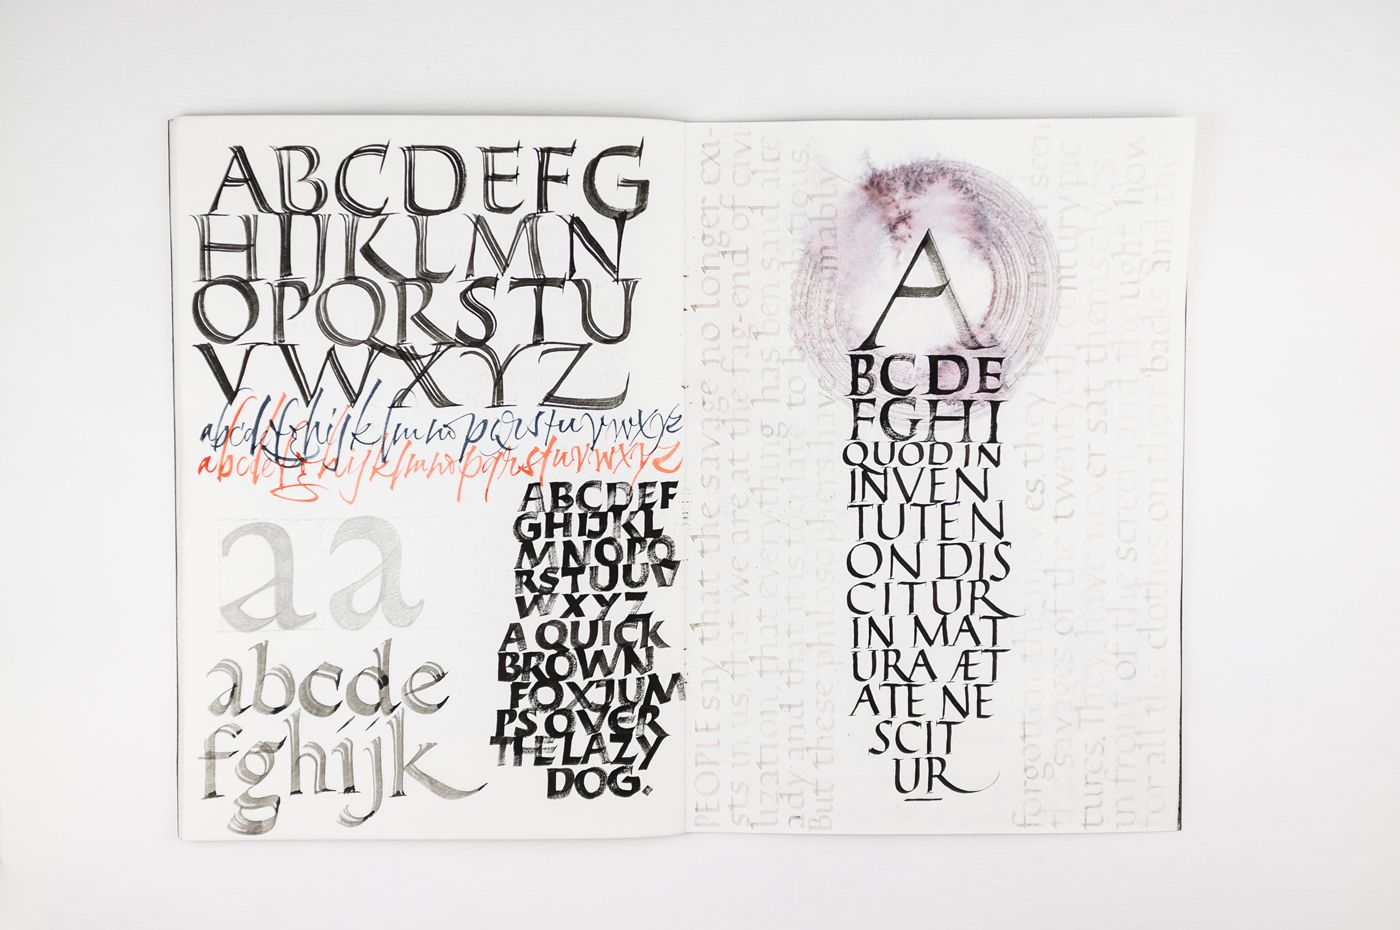 ABCDEFG
HIJKLMN
OPQRSTU
VWXYZ
abcdefghijklmnopqrstuvwxyz
abcdefghijklmnopqrstuvwxyz
aa
abcde
fghijk
ABCDEF
GHIJKL
MNOPQ
RSTUUV
WXYZ
A QUICK
BROWN
FOX JUM
PS OVER
THE LAZY
DOG.
PEOPLE say that the savage no longer exi-
sts in us, that we are at the fag-end of civi-
lization, that everything has been said alre
ady, and that it is too late to be ambitious.
But these philosophers have presumably
forgotten the
es they seen
the savages of the twentyeth century pic
tures. They have never sat themselves
in front of the screen and thought how
for all the clothes on their backs and the
A
BCDE
FGHI
QUOD IN
INVEN
TUTEN
ON DIS
CITUR
IN MAT
URA ÆT
ATE NE
SCIT
UR